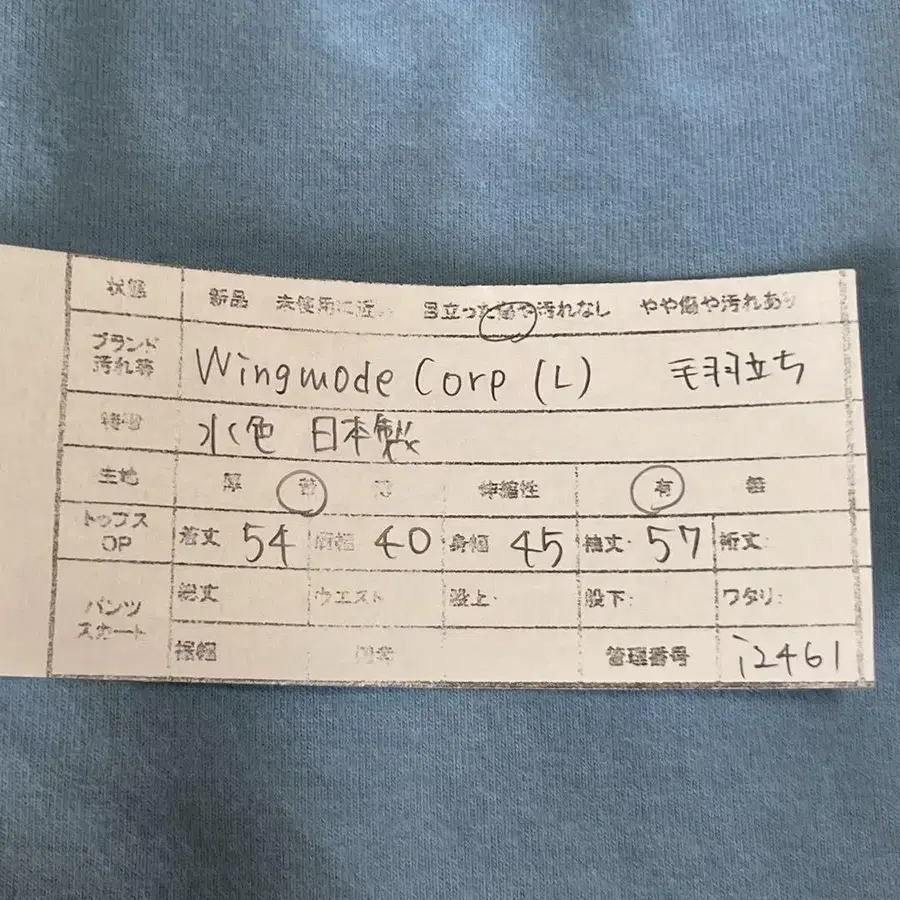 状態 新品 未使用に近い 目立った傷や汚れなし やや傷や汚れあり
ブランド 汚れ等 Wingmode Corp (L) 毛羽立ち
特徴 水色 日本製
生地 厚 普 薄 伸縮性 有 無
トップス OP 着丈 54 肩幅 40 身幅 45 袖丈: 57 裄丈:
パンツ スカート 総丈 ウエスト 股上: 股下: ワタリ:
裾幅 管理番号 i2461